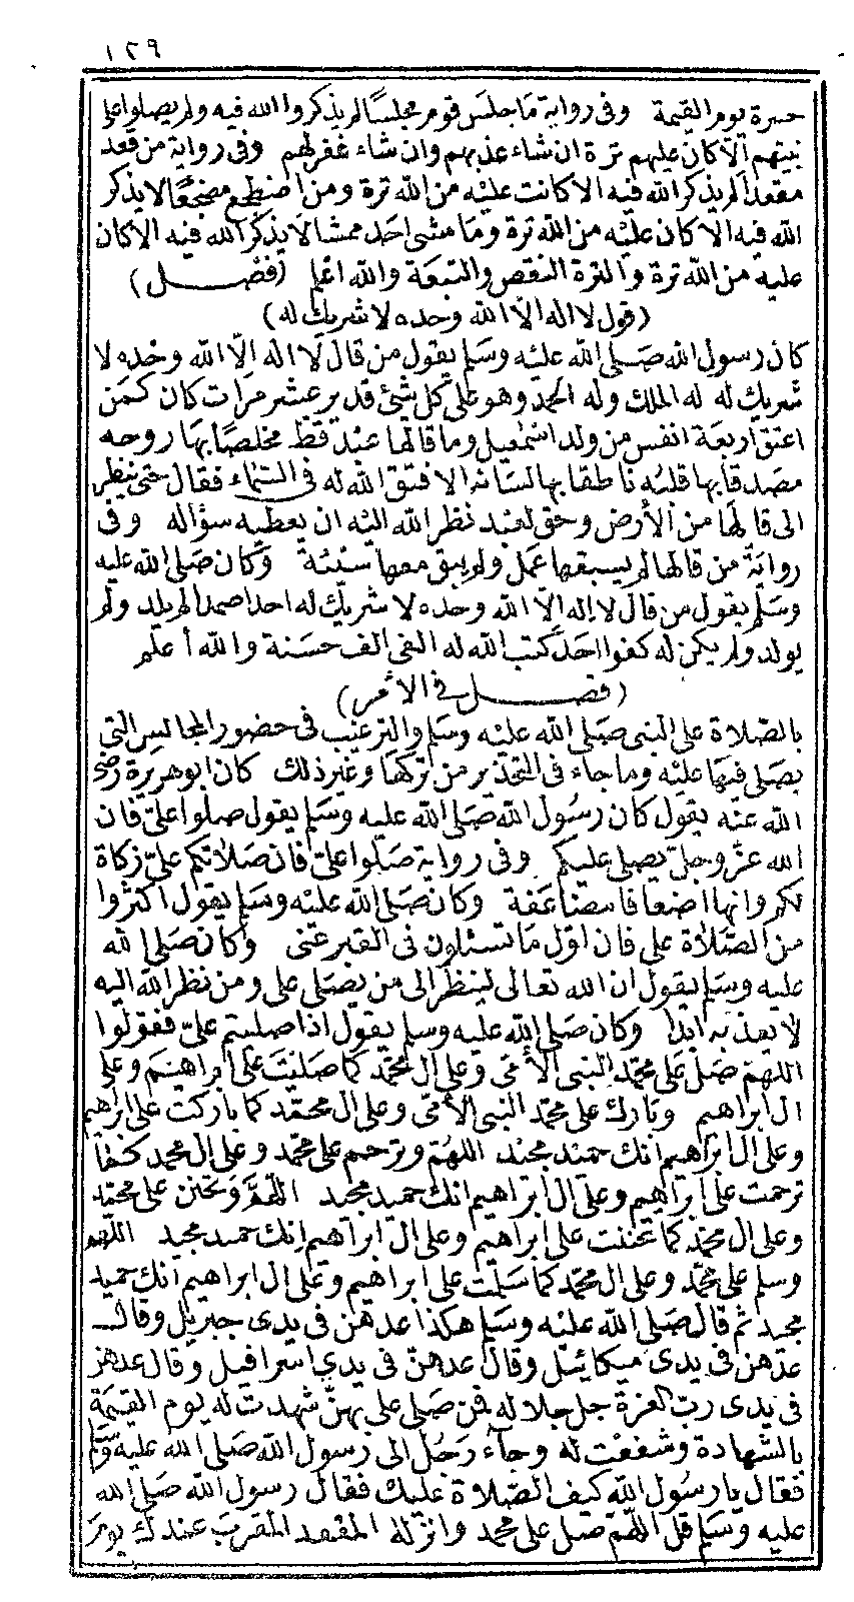 ١٢٩
حسرة يوم القيمة وفى رواية ما جلس قوم مجلسا لم يذكروا الله فيه ولم يصلوا على
نبيهم الا كان عليهم ترة ان شاء عذبهم وان شاء غفر لهم وفى رواية من قعد
مقعدا لم يذكر الله فيه الا كانت عليه من الله ترة ومن اضطجع مضجعا لا يذكر
الله فيه الا كان عليه من الله ترة وما مشى احد ممشا لا يذكر الله فيه الا كان
عليه من الله ترة والترة النقص والتبعة والله اعلم (فصل)
(قول لا اله الا الله وحده لا شريك له)
كان رسول الله صلى الله عليه وسلم يقول من قال لا اله الا الله وحده لا
شريك له له الملك وله الحمد وهو على كل شئ قدير عشر مرات كان كمن
اعتق اربعة انفس من ولد اسمعيل وما قالها عبد قط مخلصا بها روحه
مصدقا بها قلبه ناطقا بها لسانه الا فتق الله له فى السماء فقال حتى ينظر
الى قالها من الأرض وحق لعبد نظر الله اليه ان يعطيه سؤاله وفى
رواية من قالها لم يسبقها عمل ولم يبق معها سيئة وكان صلى الله عليه
وسلم يقول من قال لا اله الا الله وحده لا شريك له احدا صمدا لم يلد ولم
يولد ولم يكن له كفوا احد كتب الله له الفى الف حسنة والله أعلم
(فصل فى الأمر)
بالصلاة على النبى صلى الله عليه وسلم والترغيب فى حضور المجالس التى
يصلى فيها عليه وما جاء فى التحذير من تركها وغير ذلك كان ابو هريرة رضى
الله عنه يقول كان رسول الله صلى الله عليه وسلم يقول صلوا على فان
الله عز وجل يصلى عليكم وفى رواية صلوا على فان صلاتكم على زكاة
لكم وانها اضعافا مضاعفة وكان صلى الله عليه وسلم يقول اكثروا
من الصلاة على فان اول ما تسئلون فى القبر عنى وكان صلى الله
عليه وسلم يقول ان الله تعالى لينظر الى من يصلى على ومن نظر الله اليه
لا يعذبه ابدا وكان صلى الله عليه وسلم يقول اذا صليتم على فقولوا
اللهم صل على محمد النبى الأمى وعلى ال محمد كما صليت على ابراهيم وعلى
ال ابراهيم وبارك على محمد النبى الأمى وعلى ال محمد كما باركت على ابراهيم
وعلى ال ابراهيم انك حميد مجيد اللهم وترحم على محمد وعلى ال محمد كما
ترحمت على ابراهيم وعلى ال ابراهيم انك حميد مجيد اللهم وتحنن على محمد
وعلى ال محمد كما تحننت على ابراهيم وعلى ال ابراهيم انك حميد مجيد اللهم
وسلم على محمد وعلى ال محمد كما سلمت على ابراهيم وعلى ال ابراهيم انك حميد
مجيد ثم قال صلى الله عليه وسلم هكذا عدهن فى يدى جبريل وقال
عدهن فى يدى ميكائيل وقال عدهن فى يدى اسرافيل وقال عدهن
فى يدى رب العزة جل جلاله فمن صلى على بهن شهدت له يوم القيمة
بالشهادة وشفعت له وجاء رجل الى رسول الله صلى الله عليه وسلم
فقال يا رسول الله كيف الصلاة عليك فقال رسول الله صلى الله
عليه وسلم قل اللهم صل على محمد وانزله المقعد المقرب عندك يوم